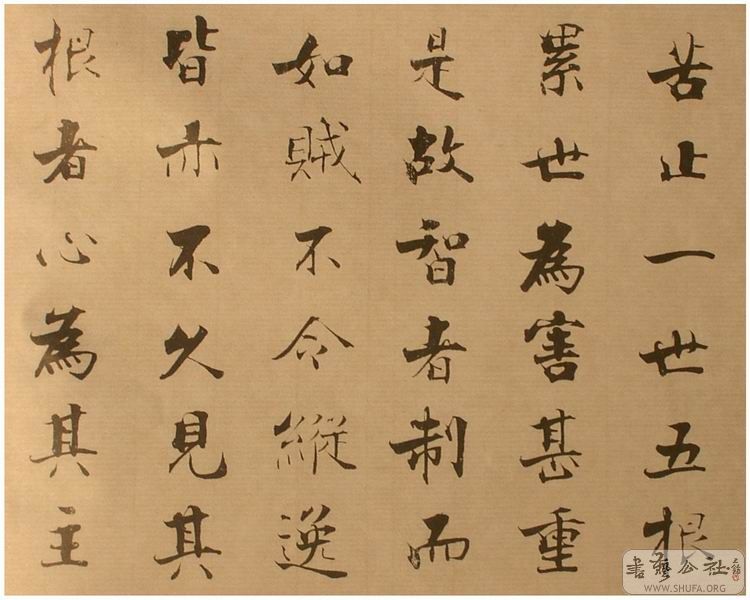 苦止一世五根
累世為害甚重
是故智者制而
如賊不令縱逸
皆亦不久見其
根者心為其主
書藝公社
WWW.SHUFA.ORG